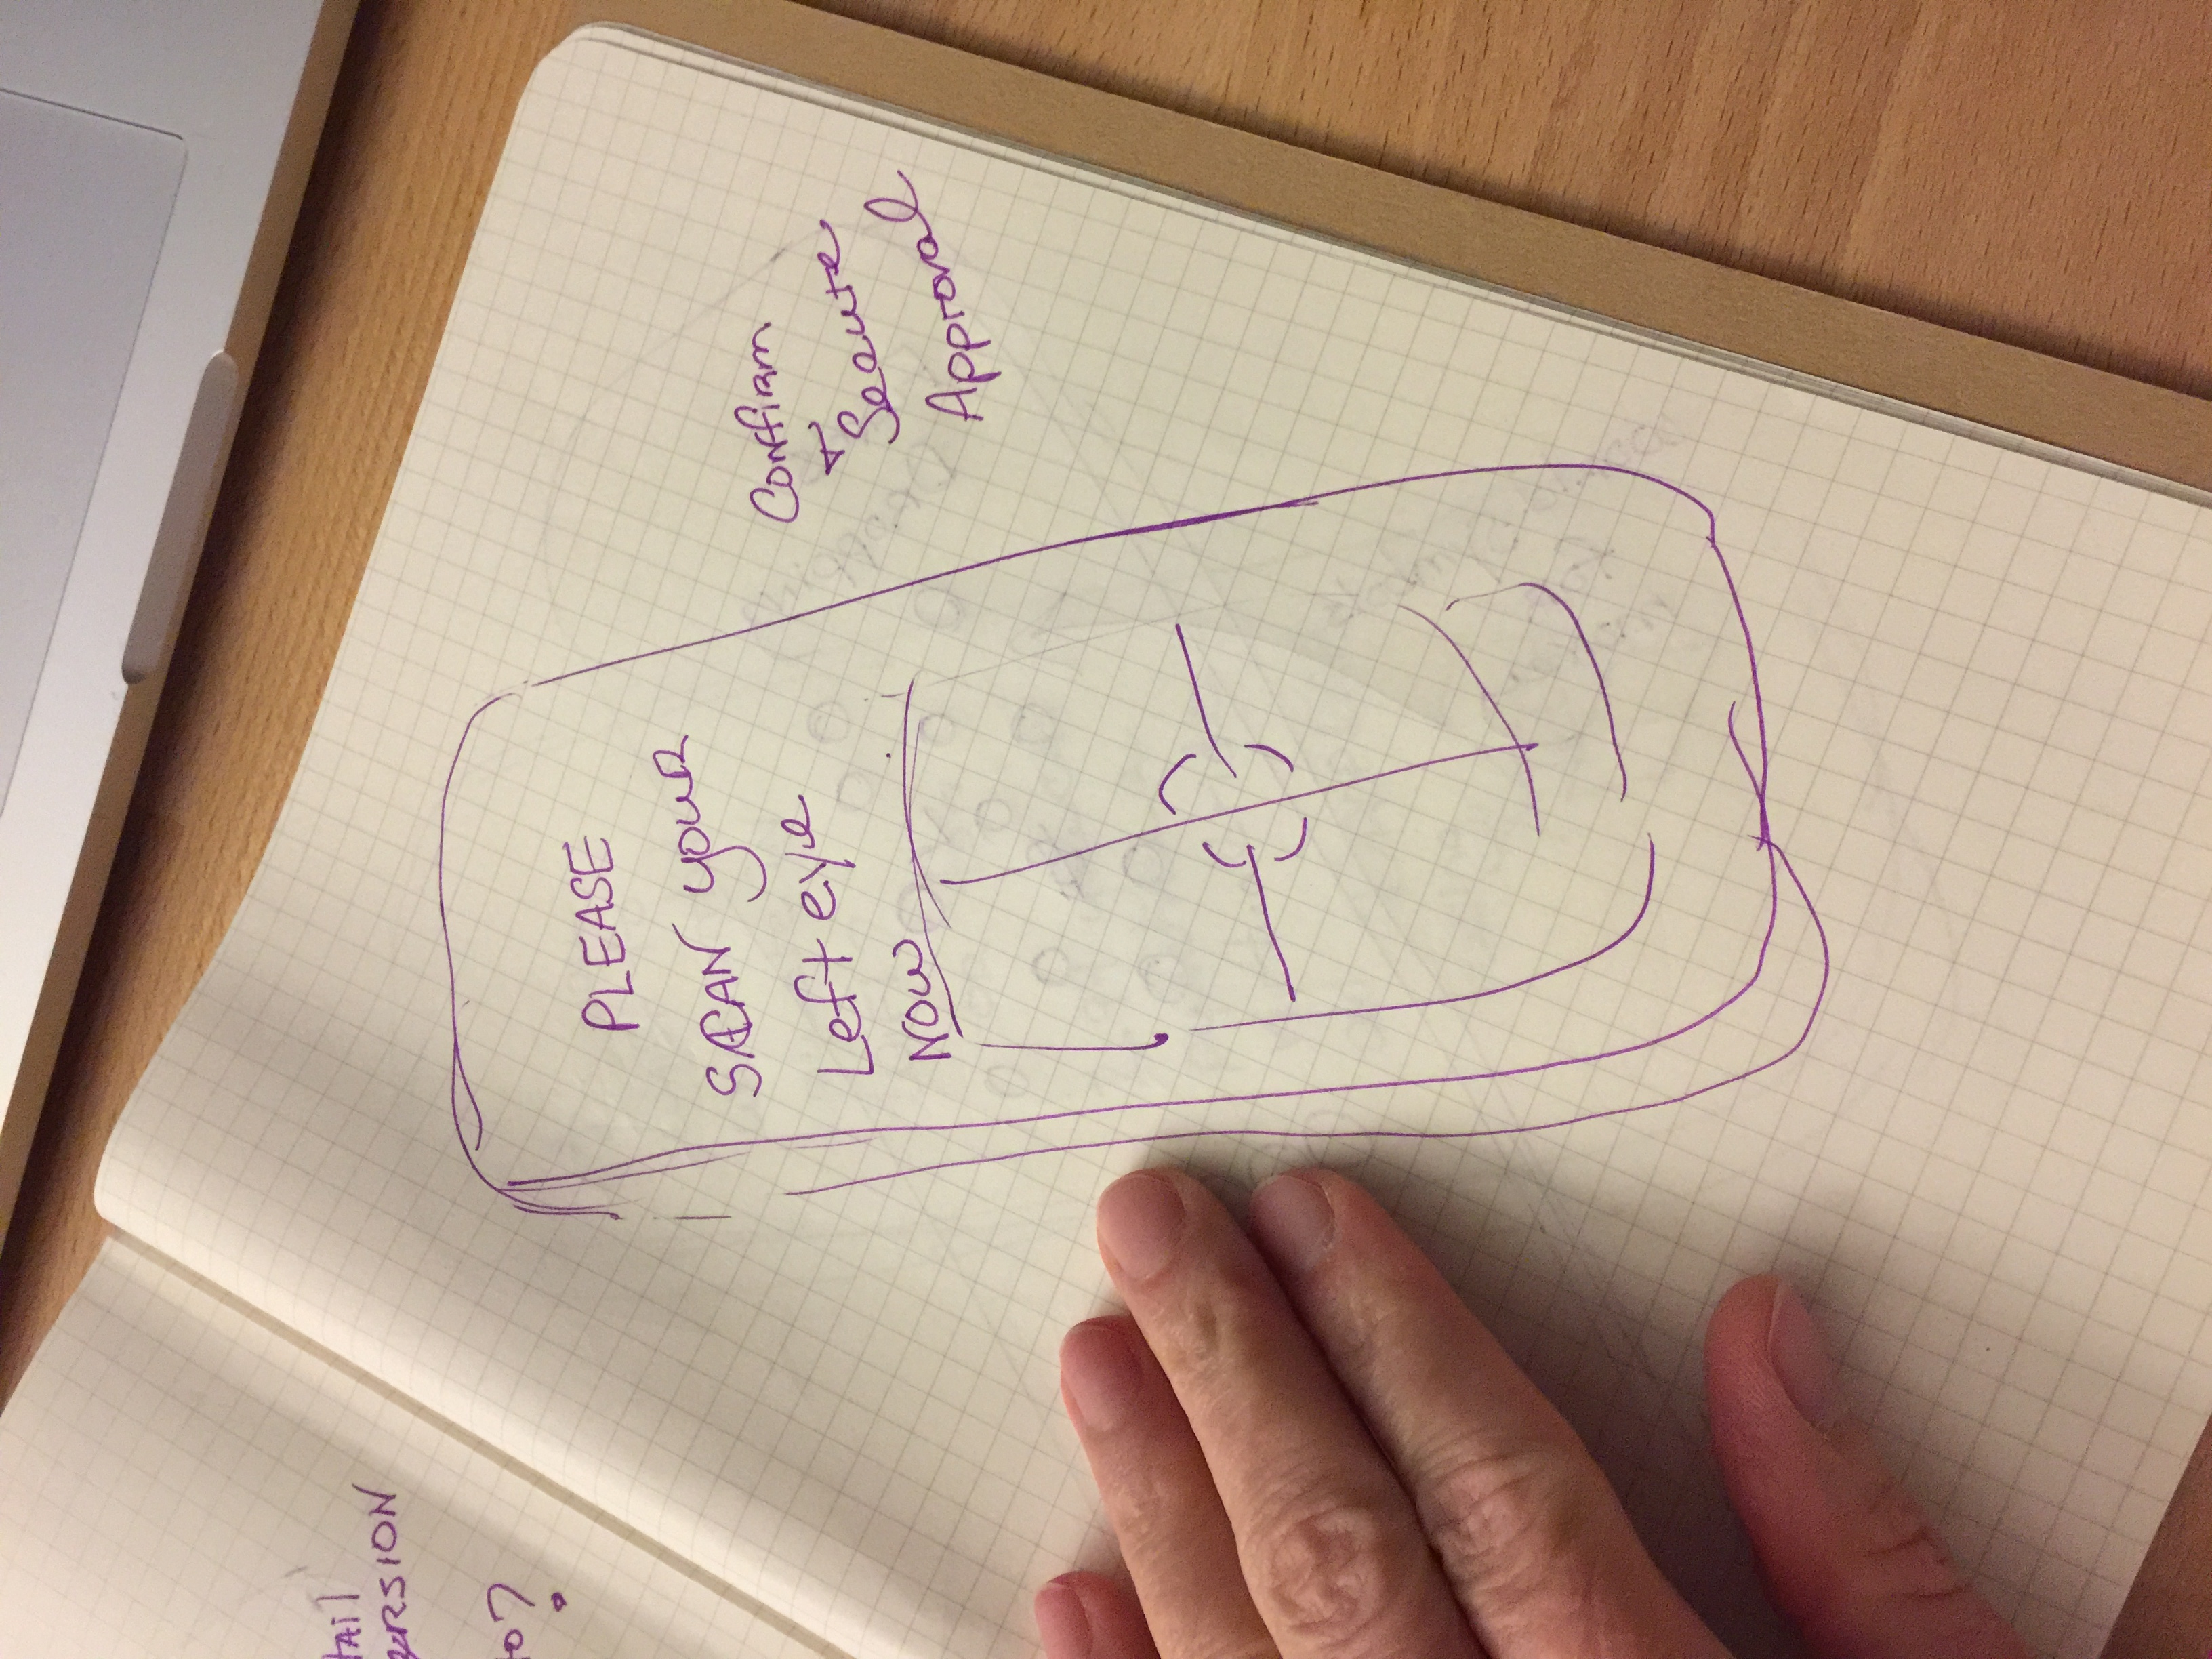 TAIL
ERSION
to?
PLEASE
SCAN YOUR
Left eye
NOW
Confirm
+
Secure
Approval